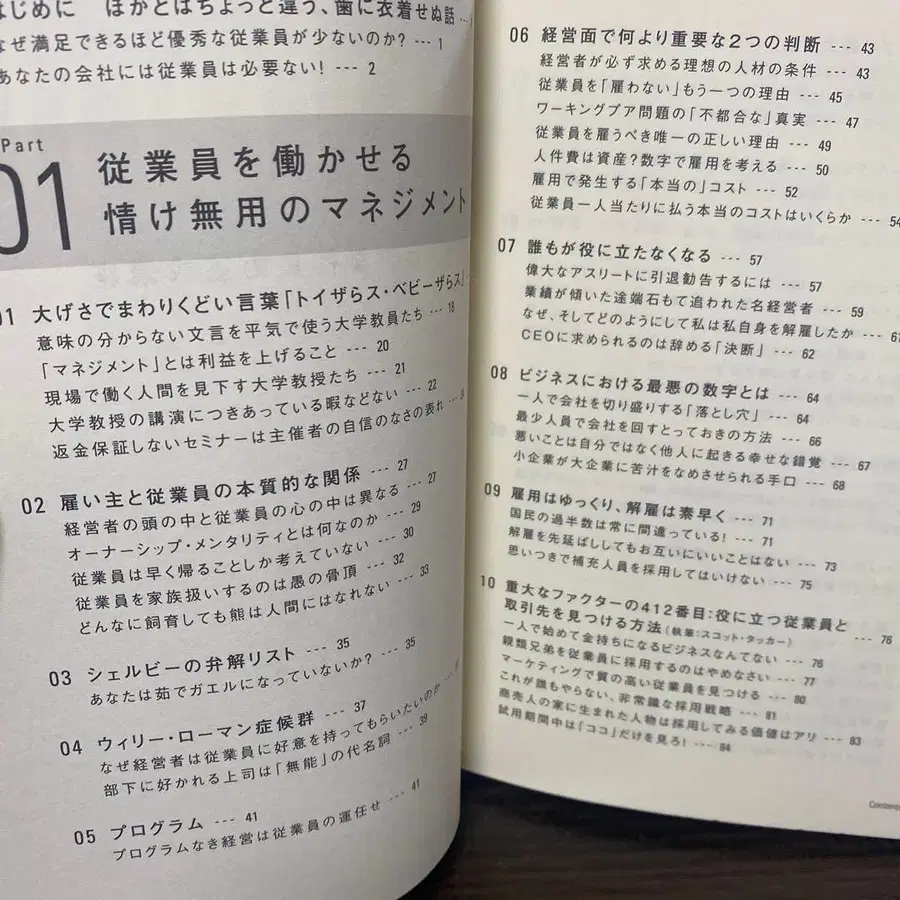 はじめに ほかとはちょっと違う、歯に衣着せぬ話
なぜ満足できるほど優秀な従業員が少ないのか? --- 1
あなたの会社には従業員は必要ない! --- 2
Part
01
従業員を働かせる
情け無用のマネジメント
01 大げさでまわりくどい言葉「トイザらス・ベビーザらス」
意味の分からない文言を平気で使う大学教員たち --- 18
「マネジメント」とは利益を上げること --- 20
現場で働く人間を見下す大学教授たち --- 21
大学教授の講演につきあっている暇などない --- 22
返金保証しないセミナーは主催者の自信のなさの表れ
02 雇い主と従業員の本質的な関係 --- 27
経営者の頭の中と従業員の心の中は異なる --- 27
オーナーシップ・メンタリティとは何なのか --- 29
従業員は早く帰ることしか考えていない --- 30
従業員を家族扱いするのは愚の骨頂 --- 32
どんなに飼育しても熊は人間にはなれない --- 33
03 シェルビーの弁解リスト --- 35
あなたは茹でガエルになっていないか? --- 35
04 ウィリー・ローマン症候群 --- 37
なぜ経営者は従業員に好意を持ってもらいたいのか
部下に好かれる上司は「無能」の代名詞 --- 39
05 プログラム --- 41
プログラムなき経営は従業員の運任せ --- 41
06 経営面で何より重要な2つの判断 --- 43
経営者が必ず求める理想の人材の条件 --- 43
従業員を「雇わない」もう一つの理由 --- 45
ワーキングプア問題の「不都合な」真実 --- 47
従業員を雇うべき唯一の正しい理由 --- 49
人件費は資産?数字で雇用を考える --- 50
雇用で発生する「本当の」コスト --- 52
従業員一人当たりに払う本当のコストはいくらか --- 54
07 誰もが役に立たなくなる --- 57
偉大なアスリートに引退勧告するには --- 57
業績が傾いた途端石もて追われた名経営者 --- 59
なぜ、そしてどのようにして私は私自身を解雇したか --- 61
CEOに求められるのは辞める「決断」 --- 62
08 ビジネスにおける最悪の数字とは --- 64
一人で会社を切り盛りする「落とし穴」 --- 64
最少人員で会社を回すとっておきの方法 --- 66
悪いことは自分ではなく他人に起きる幸せな錯覚 --- 67
小企業が大企業に苦汁をなめさせられる手口 --- 68
09 雇用はゆっくり、解雇は素早く --- 71
国民の過半数は常に間違っている! --- 71
解雇を先延ばししてもお互いにいいことはない --- 73
思いつきで補充人員を採用してはいけない --- 75
10 重大なファクターの412番目:役に立つ従業員と
取引先を見つける方法(執筆:スコット・タッカー) --- 76
一人で始めて金持ちになるビジネスなんてない --- 76
親類兄弟を従業員に採用するのはやめなさい --- 77
マーケティングで質の高い従業員を見つける --- 80
これが誰もやらない、非常識な採用戦略 --- 81
商売人の家に生まれた人物は採用してみる価値はアリ --- 83
試用期間中は「ココ」だけを見ろ! --- 84
Contents